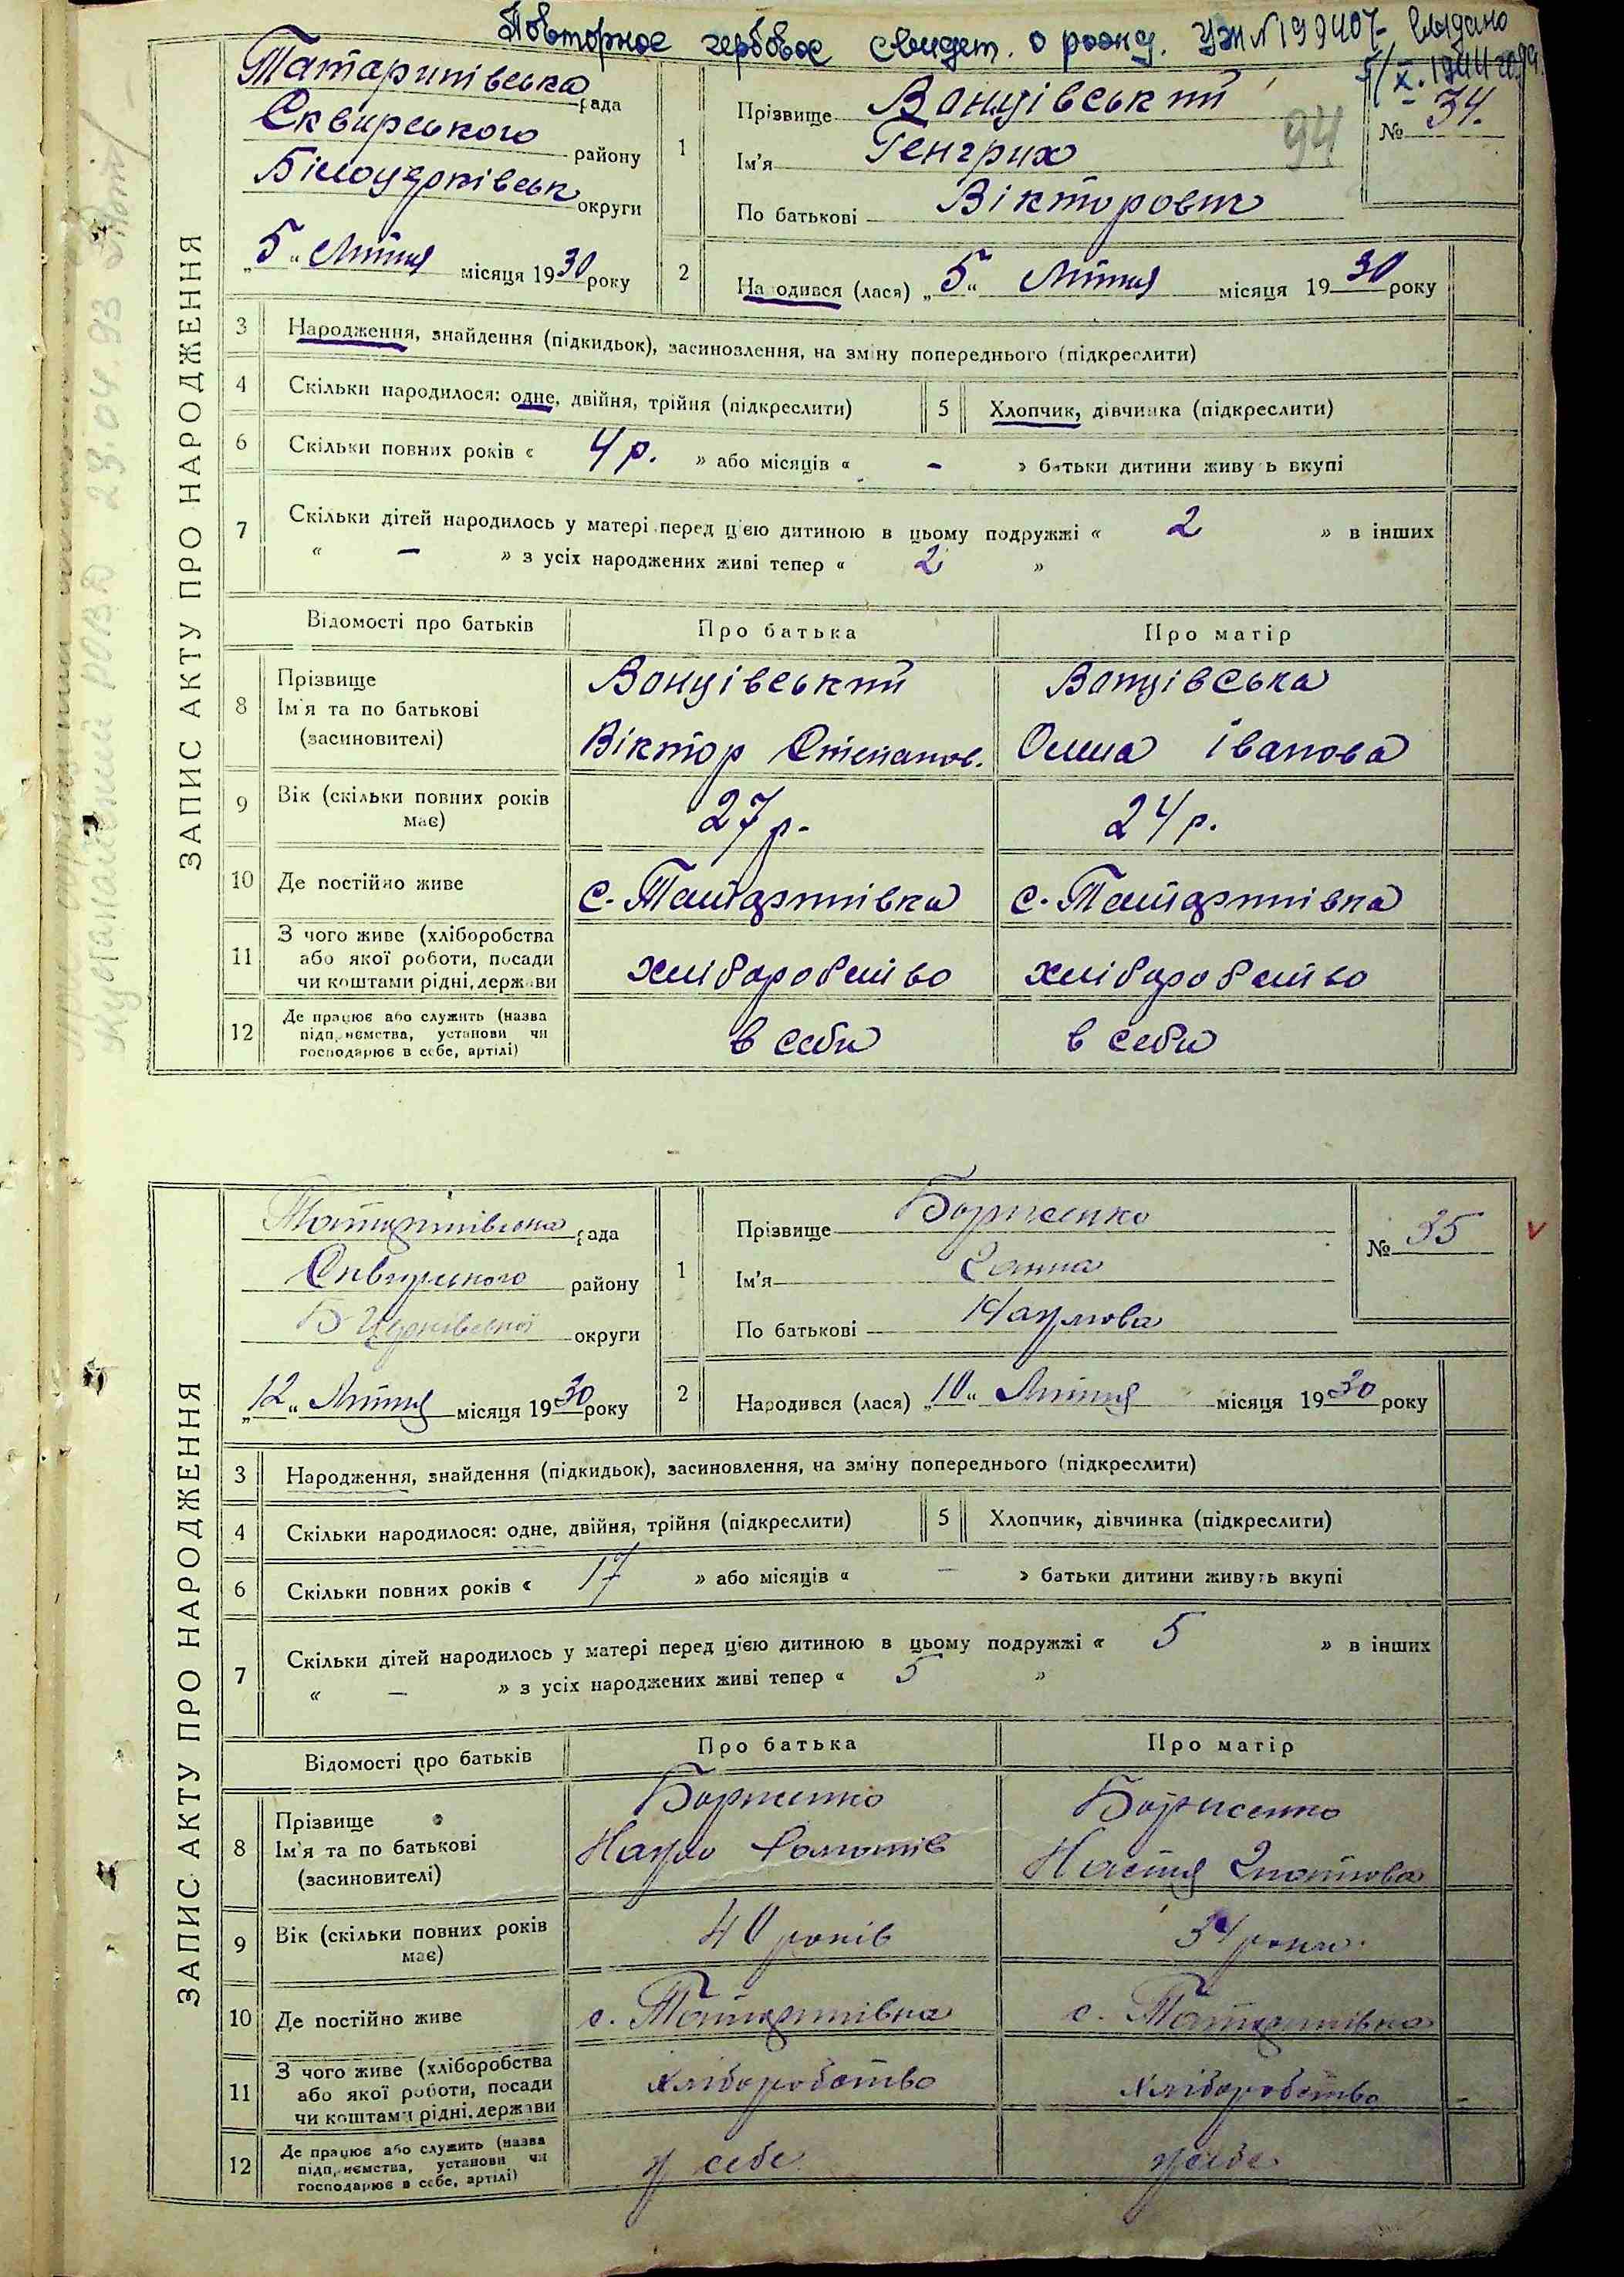 Повторное гербовое свидет. о рожд. УЖ №199407 выдано
5/X. 1944
ЗАПИС АКТУ ПРО НАРОДЖЕННЯ
Татаринівська рада
Сквирського району
Білоцерківськ округи
„5“ Липня місяця 1930 року
1
Прізвище Вонцівський
Ім'я Генгрих
По батькові Вікторович
94
№ 34.
2
Народився (лася) „5“ Липня місяця 1930 року
3 Народження, знайдення (підкидьок), засиновлення, на зміну попереднього (підкреслити)
4 Скільки народилося: одне, двійня, трійня (підкреслити) 5 Хлопчик, дівчинка (підкреслити)
6 Скільки повних років « 4 р. » або місяців « - » батьки дитини живуть вкупі
7 Скільки дітей народилось у матері перед цією дитиною в цьому подружжі « 2 » в інших
« — » з усіх народжених живі тепер « 2 »
Відомості про батьків Про батька Про матір
8 Прізвище Вонцівський Вонцівська
Ім'я та по батькові Віктор Степанов. Олина Іванова
(засиновителі)
9 Вік (скільки повних років має) 27 р. 24 р.
10 Де постійно живе с. Татаринівка с. Татаринівка
11 З чого живе (хліборобства
або якої роботи, посади хліборобство хліборобство
чи коштами рідні, держави
12 Де працює або служить (назва
підприємства, установи чи в себи в себи
господарює в себе, артілі)
ЗАПИС АКТУ ПРО НАРОДЖЕННЯ
Татаринівська рада
Сквирського району
Б Церківської округи
„12“ Липня місяця 1930 року
1
Прізвище Борисенко
Ім'я Ганна
По батькові Наумова
№ 35
2
Народився (лася) „10“ Липня місяця 1930 року
3 Народження, знайдення (підкидьок), засиновлення, на зміну попереднього (підкреслити)
4 Скільки народилося: одне, двійня, трійня (підкреслити) 5 Хлопчик, дівчинка (підкреслити)
6 Скільки повних років « 17 » або місяців « — » батьки дитини живуть вкупі
7 Скільки дітей народилось у матері перед цією дитиною в цьому подружжі « 5 » в інших
« — » з усіх народжених живі тепер « 5 »
Відомості про батьків Про батька Про матір
8 Прізвище Борисенко Борисенко
Ім'я та по батькові Наум Настя Гнатова
(засиновителі)
9 Вік (скільки повних років має) 40 років 34 роки
10 Де постійно живе с. Татаринівка с. Татаринівка
11 З чого живе (хліборобства
або якої роботи, посади хліборобство хліборобство
чи коштами рідні, держави
12 Де працює або служить (назва
підприємства, установи чи у себе у себе
господарює в себе, артілі)